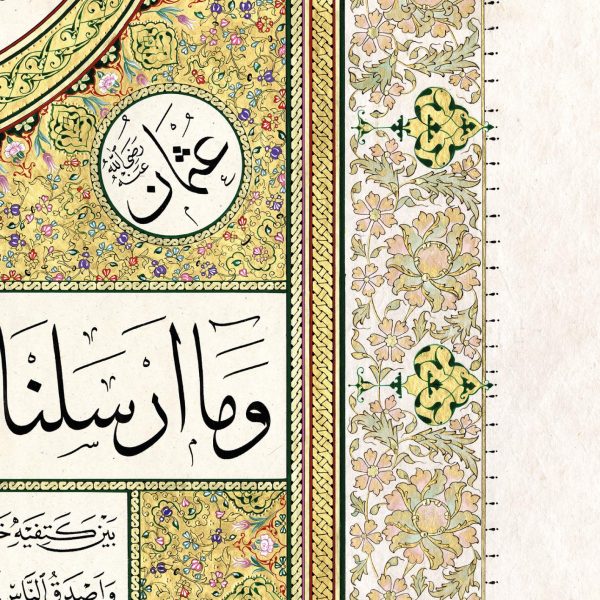 عثمان رضي الله عنه
وَمَا اَرْسَلْنَا
بَيْنَ كَتِفَيْهِ
وَاَصْدَقُ النَّاسِ